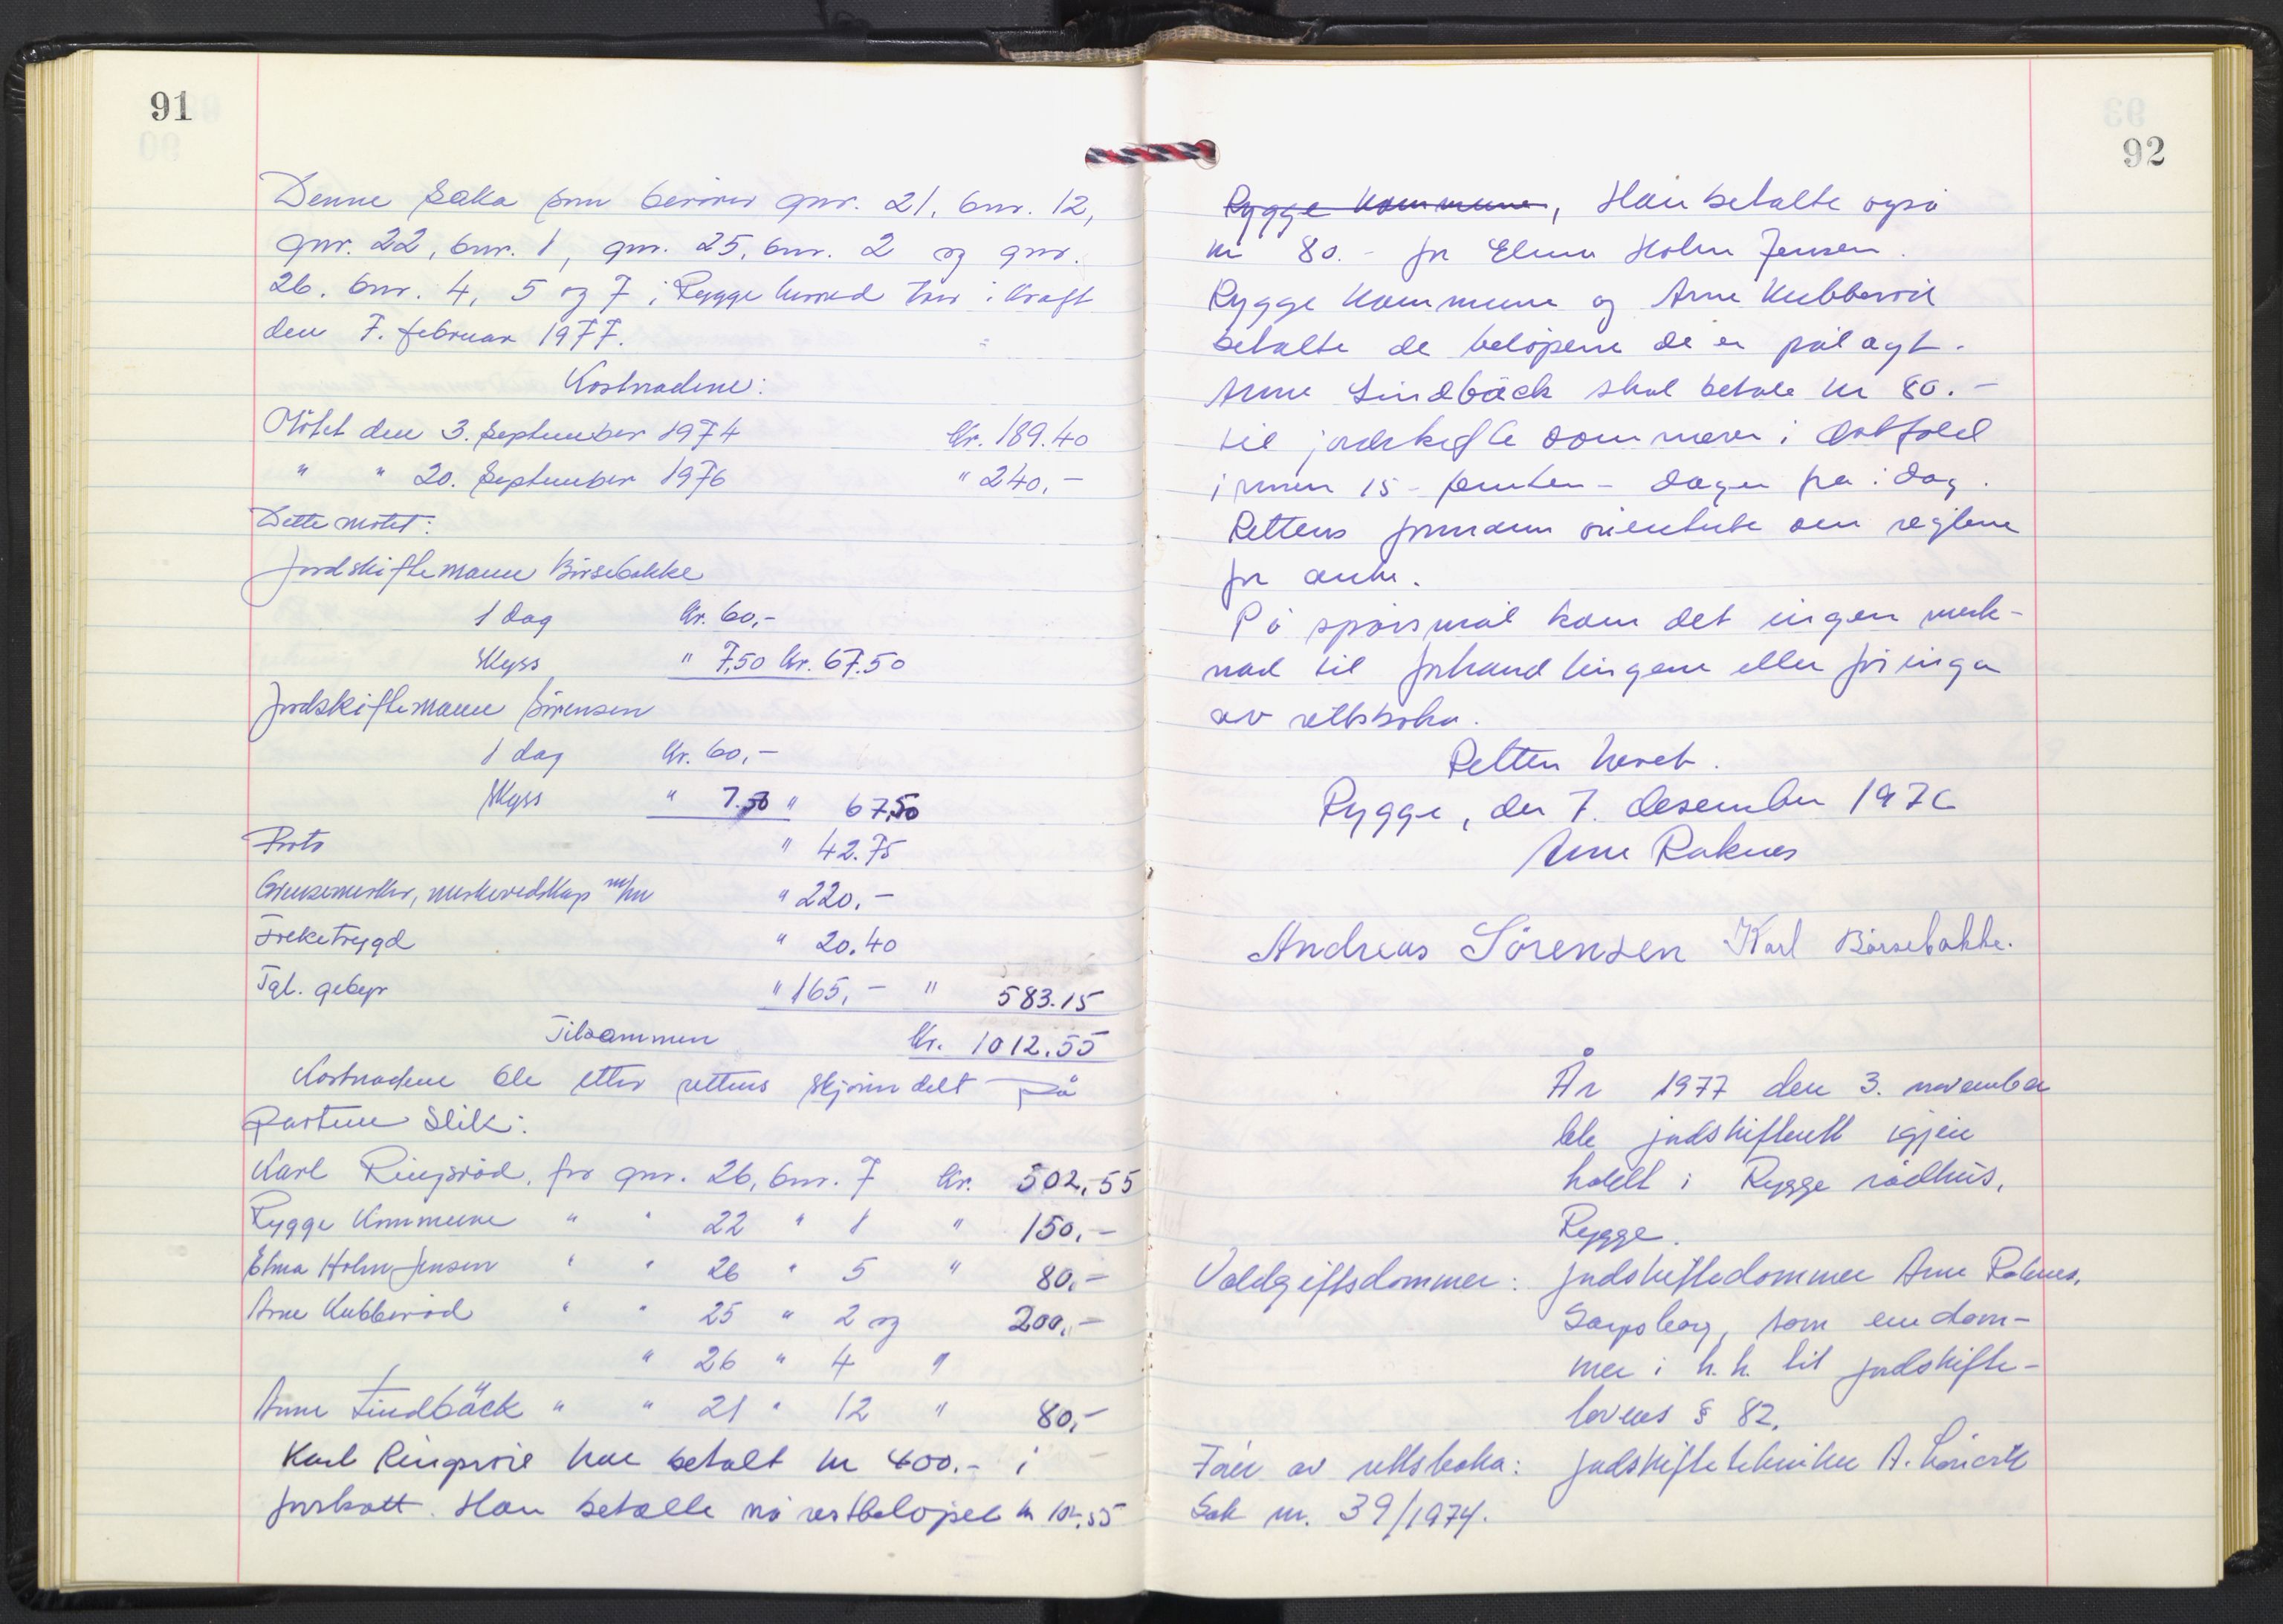 91
Denne saka som berører gnr. 21, bnr. 12,
gnr. 22, bnr. 1, gnr. 25, bnr. 2 og gnr.
26, bnr. 4, 5 og 7 i Rygge herred trer i kraft
den 7. februar 1977.
Kostnadene:
Møtet den 3. September 1974 kr. 189.40
" " 20. September 1976 " 240,-
Dette møtet:
Jordskiftemann Børsebakke
1 dag kr. 60,-
Skyss " 7,50 kr. 67.50
Jordskiftemann Sørensen
1 dag kr. 60,-
Skyss " 7.50 " 67,50
Porto " 42.75
Grensemerker, merkeredskap m/m " 220,-
Treketrygd " 20.40
Tgl. gebyr " 165,- " 583.15
Tilsammen kr. 1012.55
Kostnadene ble etter rettens skjønn delt på
partene slik:
Karl Ringsrød, for gnr. 26, bnr. 7 kr. 502,55
Rygge kommune " " 22 " 1 " 150,-
Elma Holm Jensen " " 26 " 5 " 80,-
Arne Kubberød " " 25 " 2 og 200,-
" 26 " 4 "
Arne Lindbäck " " 21 " 12 " 80,-
Karl Ringsrød har betalt kr 400.- i
forskott. Han betalte nå restbeløpet kr 102,55
92
Rygge kommune, Han betalte også
kr 80.- for Elma Holm Jensen.
Rygge kommune og Arne Kubberød
betalte de beløpene de er pålagt.
Arne Lindbäck skal betale kr 80.-
til jordskiftedommeren i Østfold
innen 15 - femten - dager fra i dag.
Rettens formann orienterte om reglene
for anke.
På spørsmål kom det ingen merk-
nad til forhandlingene eller føringa
av rettsboka.
Retten hevet.
Rygge, den 7. desember 1976
Arne Raknes
Andreas Sörensen Karl Börsebakke.
År 1977 den 3. november
ble jordskifterett igjen
holdt i Rygge rådhus,
Rygge.
Voldgiftsdommer: Jordskiftedommer Arne Raknes,
Sarpsborg, som enedom-
mer i h.h. til jordskifte-
lovens § 82.
Fører av rettsboka: Jordskiftetekniker A.
Sak nr. 39/1974.